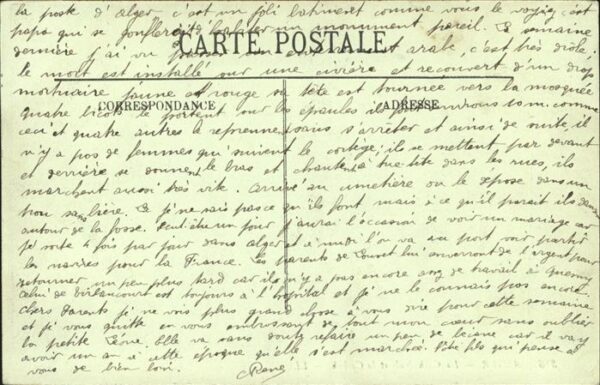 la poste d'alger c'est un joli batiment comme vous le voyez c'est
papa qui se gonflerait d'habiter un monument pareil. La semaine
dernière j'ai vu passer un enterrement arabe, c'est très drôle,
CARTE POSTALE
le mort est installé sur une civière et recouvert d'un drap
mortuaire jaune et rouge sa tête est tournée vers la mosquée
quatre bicots le portent sur les épaules ils font environs 15 m. comme
CORRESPONDANCE
ADRESSE
ceci et quatre autres le reprennent sans s'arrêter et ainsi de suite, il
n'y a pas de femmes qui suivent le cortège; ils se mettent par devant
et derrière se donnent le bras et chantent à tue tête dans les rues, ils
marchent aussi très vite. Arrivé au cimetière on le dépose dans un
trou sans bière. Là je ne sais pas ce qu'ils font mais à ce qu'il parait ils dansent
autour de la fosse. Peut être un jour j'aurai l'occasion de voir un mariage car
je sorte 4 fois par jour dans alger et à midi l'on va au port voir partir
les navires pour la France. Les parents de Louret lui enverront de l'argent pour
retourner un peu plus tard car il n'y a pas encore de travail à
Celui de birlancourt est toujours à l'hopital et je ne le connais pas encore.
chers parents je ne vois plus grand chose à vous dire pour cette semaine
et je vous quitte en vous embrassant de tout mon cœur sans oublier
la petite Léone. Elle va sans doute refaire un peu de peine car il va y
avoir un an à cette époque qu'elle s'est marchée. Votre fils qui pense à
vous de bien loin. René